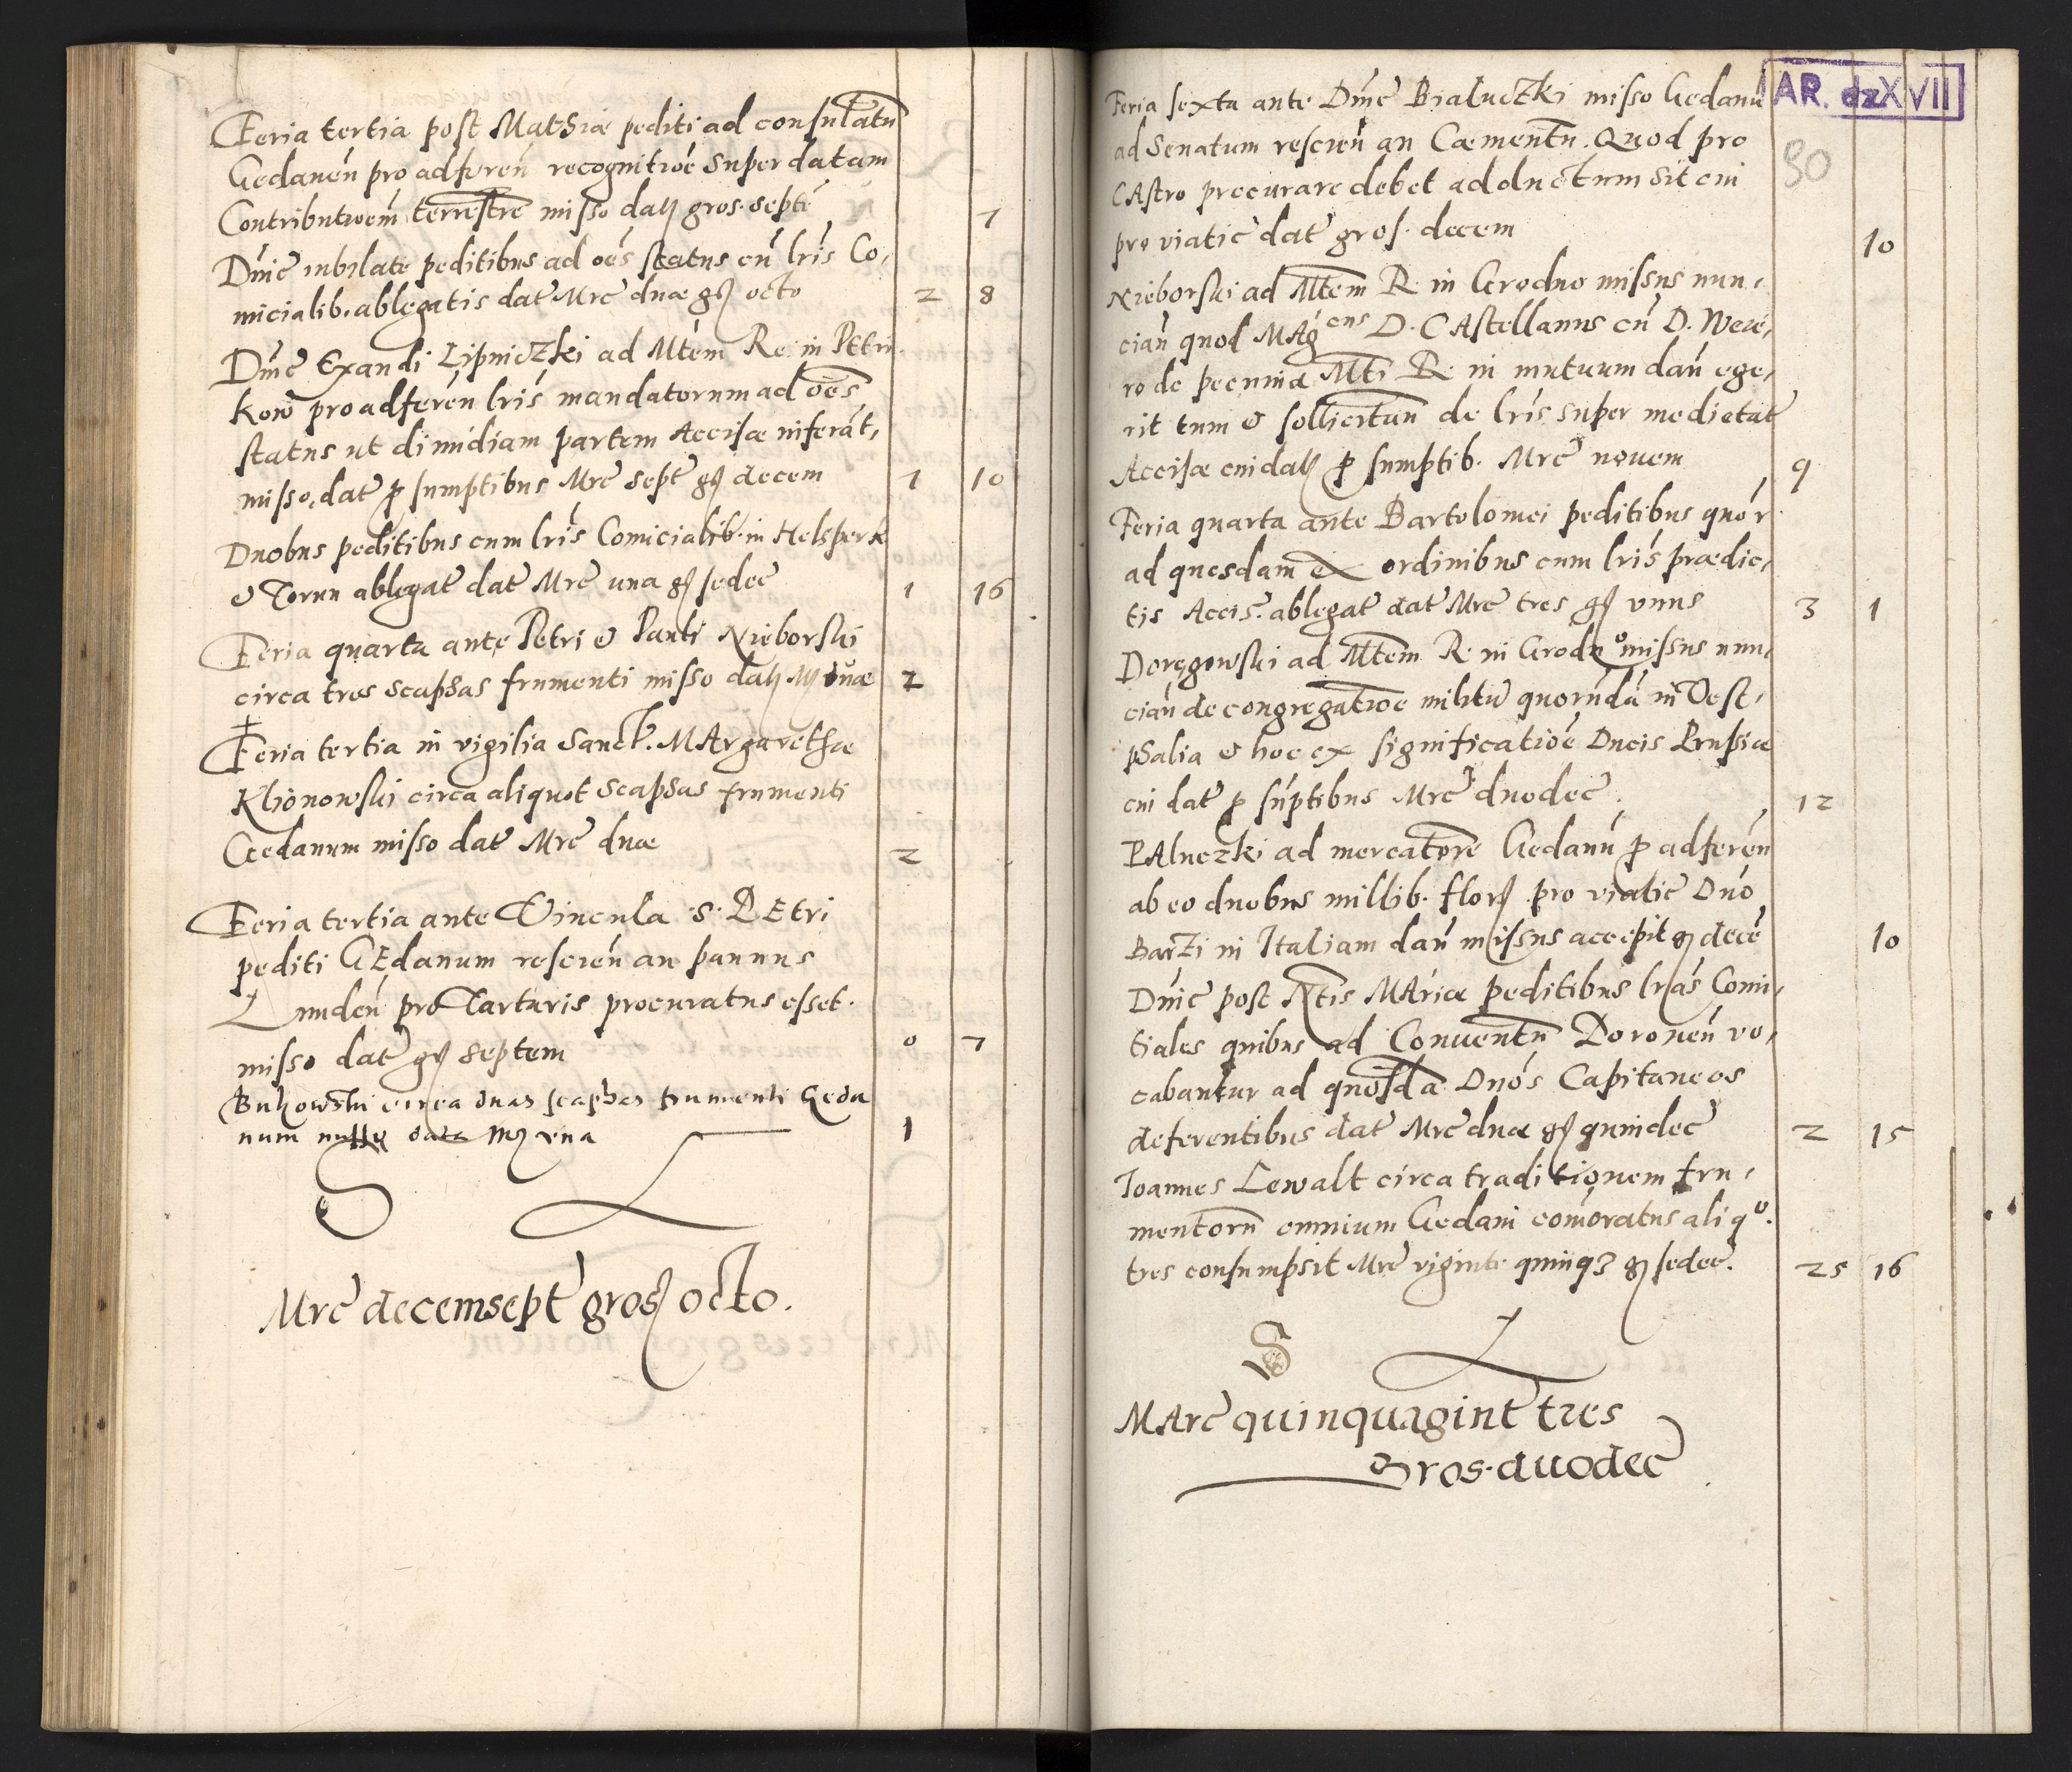 Feria tertia post Mathiæ pediti ad consulatū
Gedanen̄ pro adferen̄ recognitiōe super datam
Contributioem̄ terrestre misso dat gros. septē 7
Dn̄ic iubilate peditibus ad oēs status cū lr̄is Co,
micialib. ablegatis dat Mrc duæ gs octo 2 8
Dn̄ic Exaudi Lipniczki ad Mtēm Re. in Petri
kow pro adferen̄ lr̄is mandatorum ad oēs
status ut dimidiam partem Accisæ inferāt,
misso, dat p sumptibus Mrc sept gs decem 7 10
Duobus peditibus cum lr̄is Comicialib. in Helsperk
& Torun ablegat dat Mrc una gs sedec 1 16
Feria quarta ante Petri & Pauli Nieborski
circa tres scaphas frumenti misso dat M duæ 2
Feria tertia in vigilia Sanct. MArgarethæ
Klionowski circa aliquot scaphas frumenti
Gedanum misso dat Mrc duæ 2
Feria tertia ante Vincula .S. PEtri
pediti GEdanum rescien̄ an pannus
Lunden̄ pro Tartaris procuratus esset.
misso dat gs septem 0 7
Bukowski circa duas scaphas frumenti Geda
num data M una 1
S L
Mrc decemsept gros octo.
AR. dz XVII
80
Feria sexta ante Dn̄ic Bialuczki misso Gedanū
ad Senatum rescien̄ an Cæmentū. Quod pro
CAstro procurare debet adductum sit cui
pro viatic dat gros. decem 10
Nieborski ad Mtēm R. in Grodno missus nun,
cian̄ quod MAgcus D. CAstellanus cū D. Wei,
ro de pecunia Mti R. in mutuum dan̄ ege,
rit tum & sollicitan̄ de lr̄is super medietat
Accisæ cui dat p sumptib. Mrc nouem 9
Feria quarta ante Bartolomei peditibus quōr
ad quosdam ex ordinibus cum lr̄is prædic,
tis Accis. ablegat dat Mrc tres gs unus 3 1
Doręgowski ad Mtēm R. in Grodno missus nun,
cian̄ de congregatiōe militū quorundā in Vest,
phalia & hoc ex significatiōe Ducis Prussiæ
cui dat p sūptibus Mrc duodec. 12
BAluczki ad mercatorē Gedanū p adferen̄
ab eo duobus millib. flors pro viatic Dn̄o
Barzi in Italiam dan̄ missus accepit gs decē 10
Dn̄ic post Ntis MAriæ peditibus lr̄as Comi,
tiales quibus ad Conuentū Doronen̄ vo,
cabantur ad quosdā Dn̄os Capitaneos
deferentibus dat Mrc duæ gs quindec 2 15
Ioannes Lewalt circa traditionem fru,
mentorū omnium Gedani comoratus aliqo.
tres consumpsit Mrc viginti quinq3 gs sedec. 25 16
S L
MArc quinquagint tres
Gros. duodec